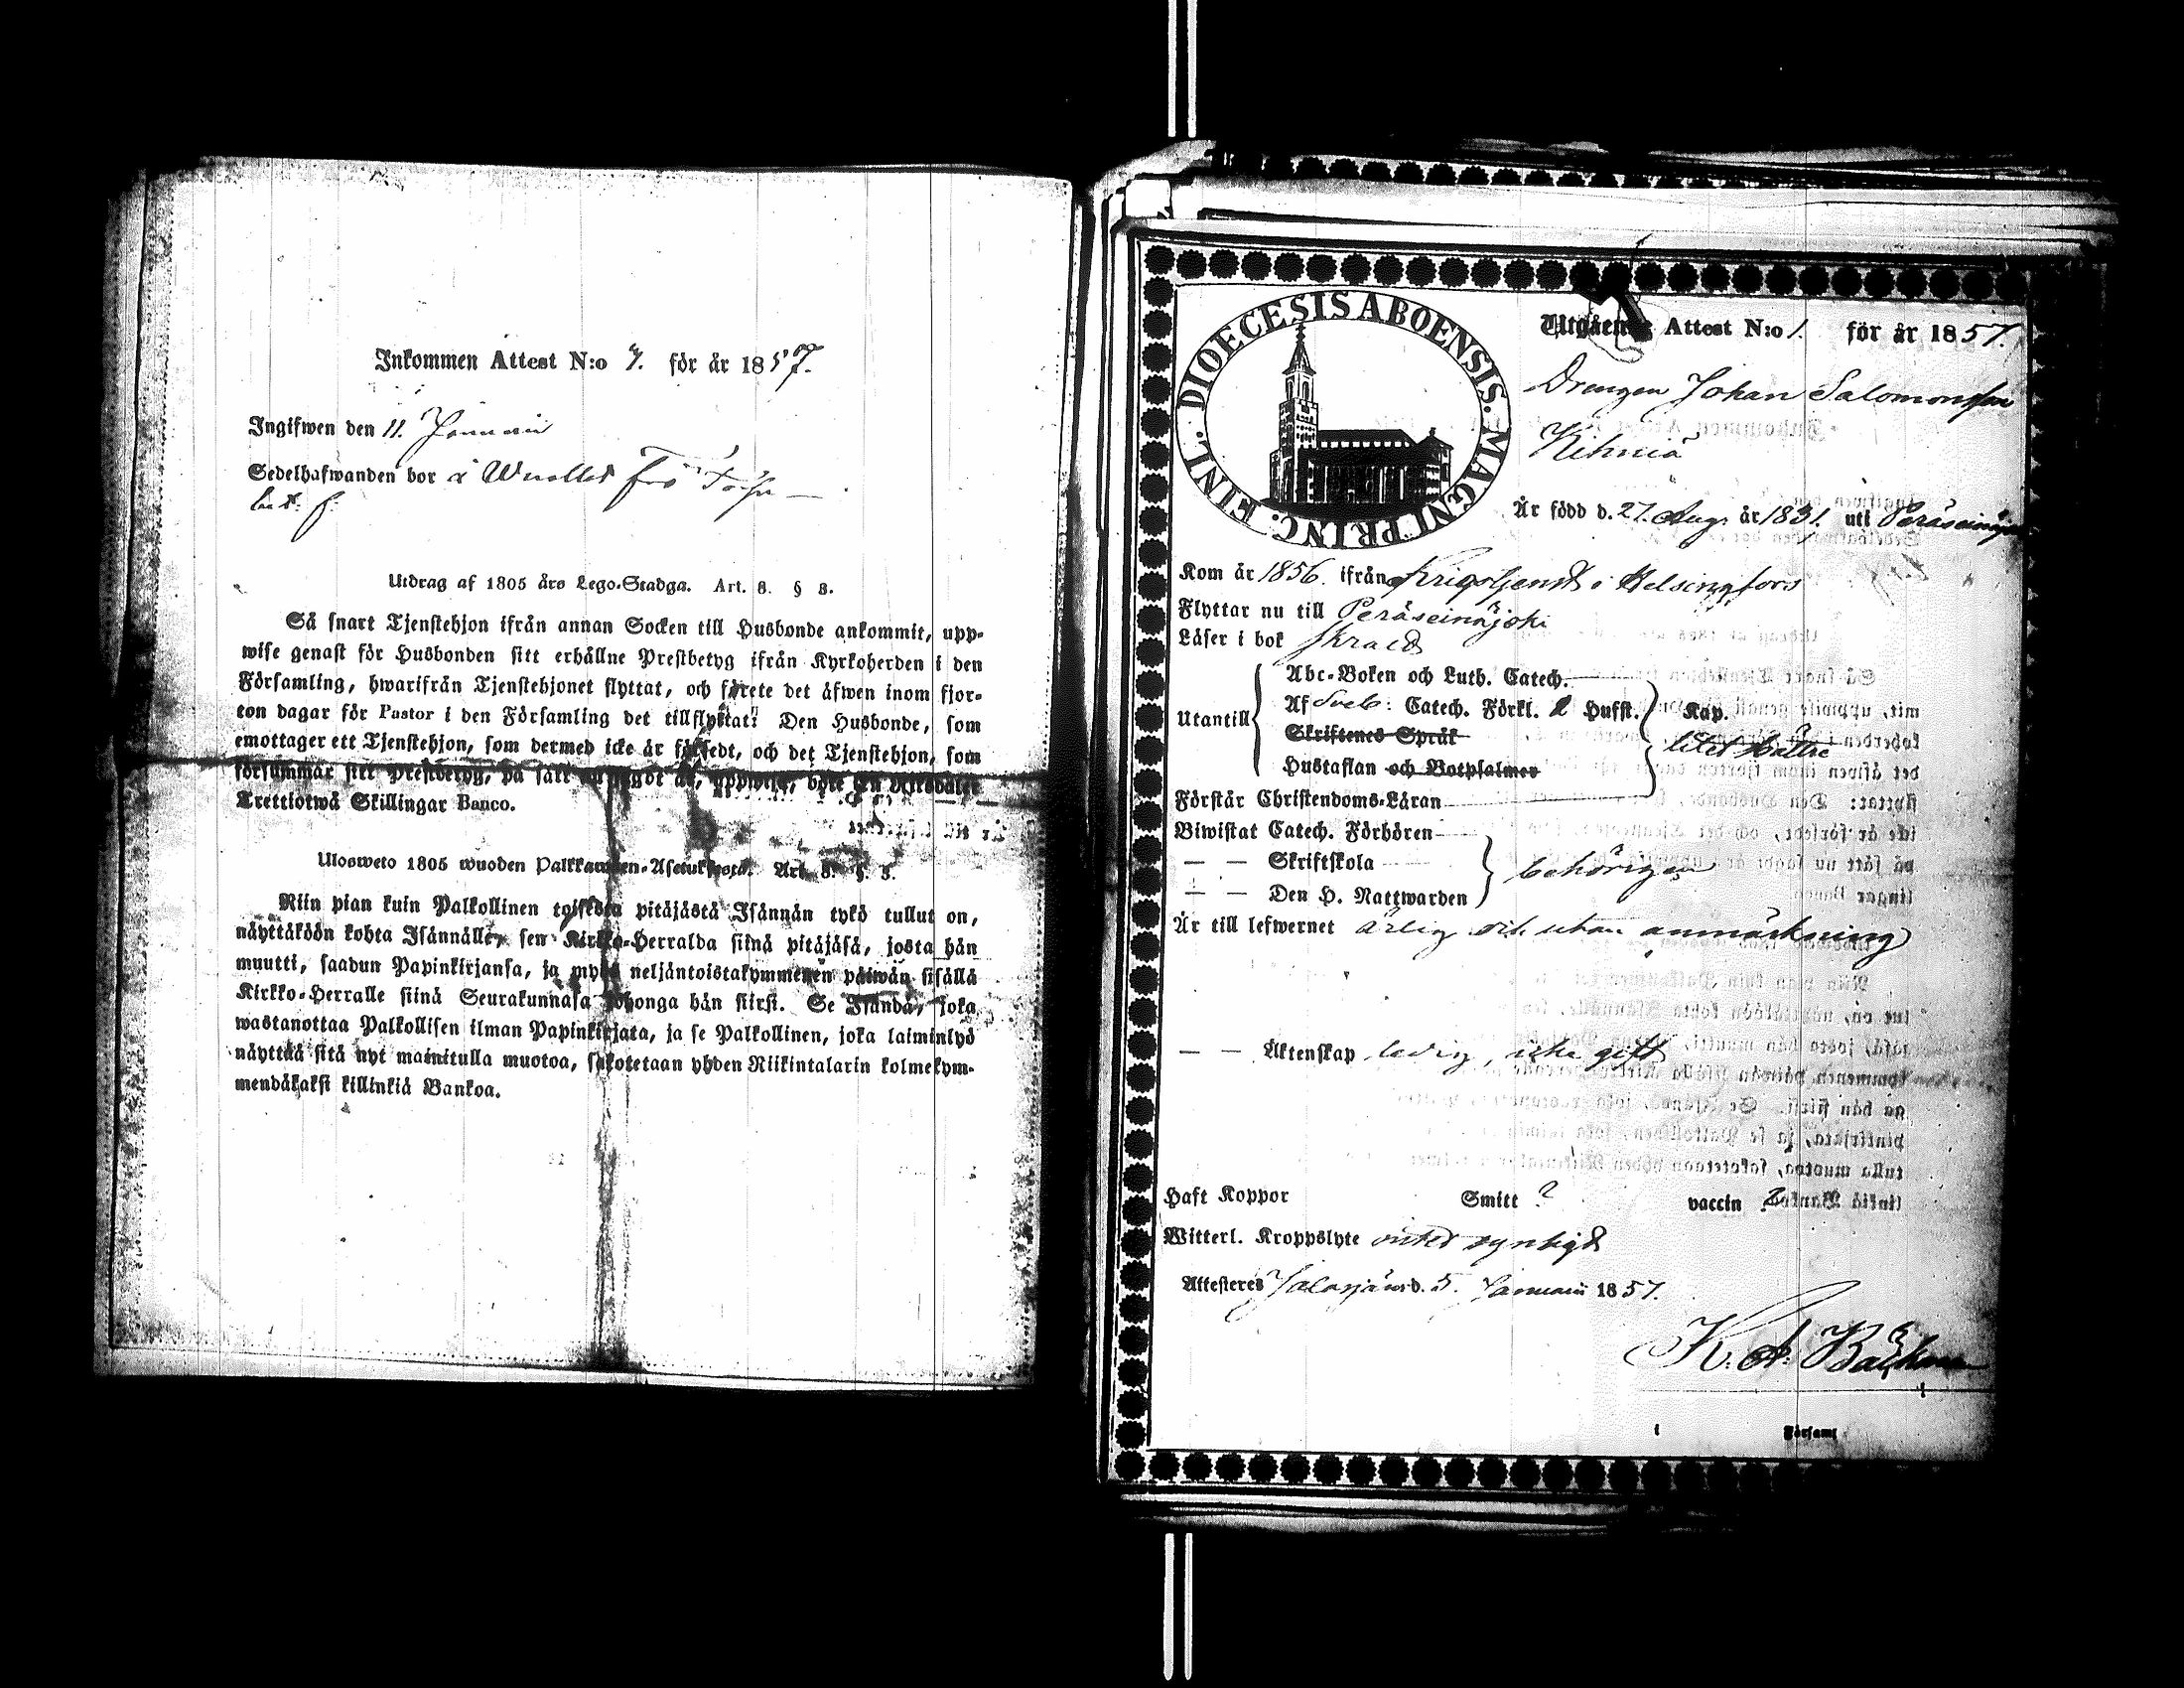 Inkommen Attest N:o 7. för år 1857.
Ingifwen den 11. Januari
Sedelhafwanden bor å
Utdrag af 1805 års Lego-Stadga. Art. 8. § 3.
Så snart Tjenstehjon ifrån annan Socken till Husbonde ankommit, upp-
wise genast för Husbonden sitt erhållne Prestbetyg ifrån Kyrkoherden i den
Församling, hwarifrån Tjenstehjonet flyttat, och förete det äfwen inom fjor-
ton dagar för Pastor i den Församling det tillflyttat: Den Husbonde, som
emottager ett Tjenstehjon, som dermed icke är försedt, och det Tjenstehjon, som
försummar sitt Prestbetyg, på sätt nu sagdt är, uppwisa, böte en Riksdaler
Trettiotwå Skillingar Banco.
Ulosweto 1805 wuoden Palkkawäen-Asetuksesta. Art. 8. §. 3.
Niin pian kuin Palkollinen toisesta pitäjästä Isännän tykö tullut on,
näyttäköön kohta Isännälle, sen Kirkko-Herralda siinä pitäjäsä, josta hän
muutti, saadun Papinkirjansa, ja myös neljäntoistakymmenen päiwän sisällä
Kirkko-Herralle siinä Seurakunnasa johonga hän siirsi. Se Isändä, joka
wastanottaa Palkollisen ilman Papinkirjata, ja se Palkollinen, joka laiminlyö
näyttää sitä nyt mainitulla muotoa, sakotetaan yhden Riikintalarin kolmekym-
mendäkaksi killinkiä Bankoa.
DIOECESIS ABOENSIS. MAGNI PRINC. FINL.
Utgående Attest N:o 1. för år 1857.
Drengen Johan Salomonsson
Kihniä
Är född d. 27. Aug. år 1831. uti Peräseinäjoki
Kom år 1856. ifrån Krigstjenst i Helsingfors
Flyttar nu till Peräseinäjoki
Läser i bok
Abc-Boken och Luth. Catech.
Utantill Af Sveb: Catech. Förkl. 2 Hufst. Kap.
Skriftenes Språk litet bättre
Hustaflan och Botpsalmer
Förstår Christendoms-Läran
Biwistat Catech. Förhören
— — Skriftskola behörigen
— — Den H. Nattwarden
Är till lefwernet ärlig och utan anmärkning
— — Äktenskap ledig, icke gift
Haft Koppor Smitt ? vaccin ?
Witterl. Kroppslyte intet synligt
Attesteres Jalasjärwi d. 5. Januari 1857.
K. A. Bäckman
i Församl